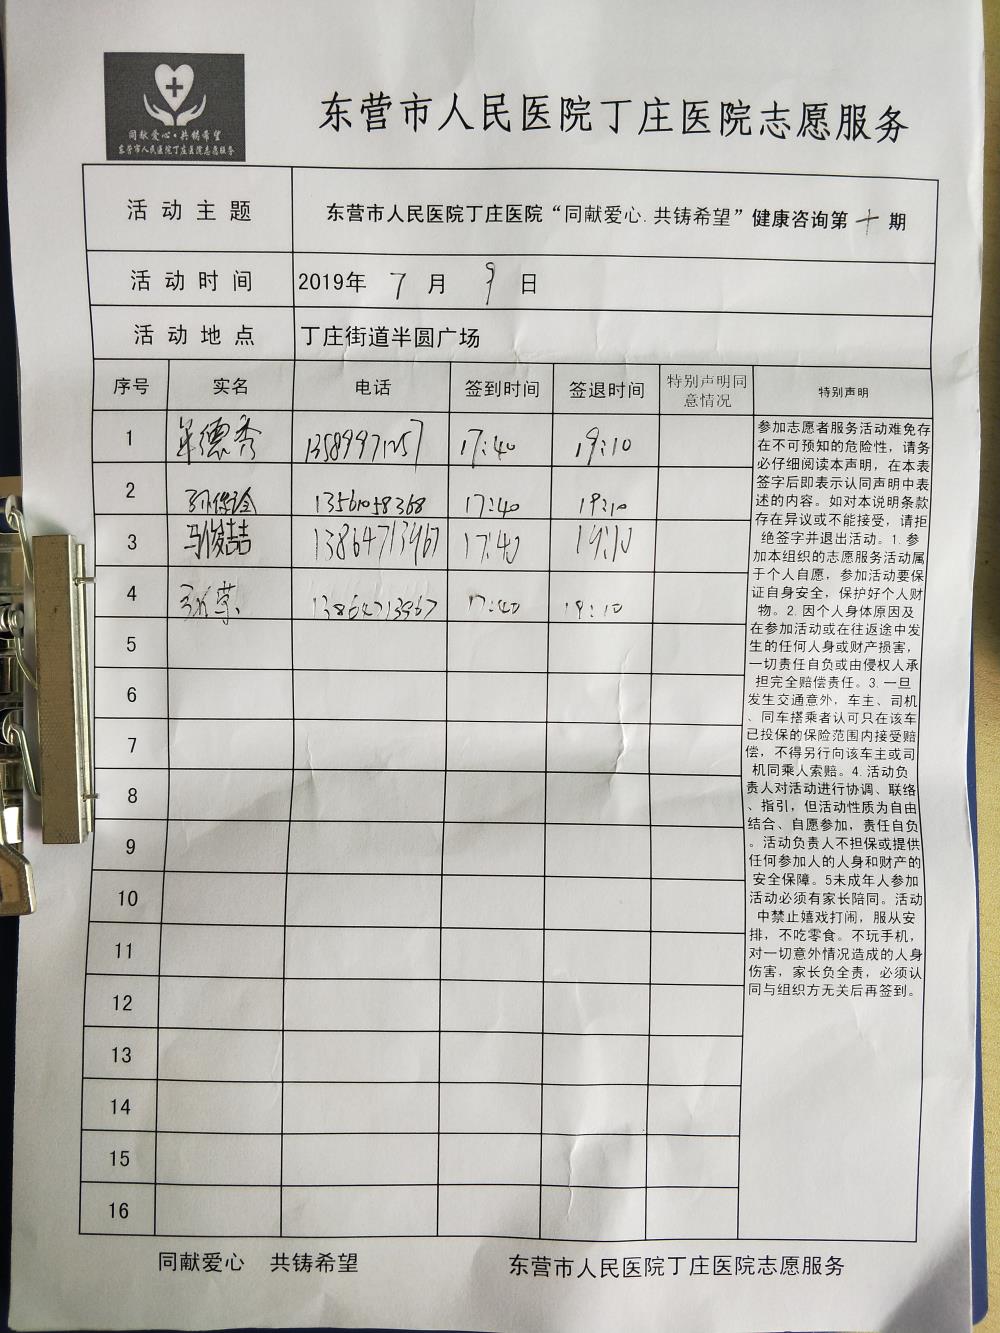 同献爱心·共铸希望
东营市人民医院丁庄医院志愿服务
东营市人民医院丁庄医院志愿服务
活动主题 东营市人民医院丁庄医院“同献爱心.共铸希望”健康咨询第十期
活动时间 2019年 7 月 9 日
活动地点 丁庄街道半圆广场
序号 实名 电话 签到时间 签退时间 特别声明同意情况 特别声明
1 德秀 17:40 19:10
2 13561058368 17:40 19:10
3 马俊喆 13864713967 17:40 19:10
4 13864713967 17:40 19:10
5
6
7
8
9
10
11
12
13
14
15
16
参加志愿者服务活动难免存
在不可预知的危险性，请务
必仔细阅读本声明，在本表
签字后即表示认同声明中表
述的内容。如对本说明条款
存在异议或不能接受，请拒
绝签字并退出活动。1.参
加本组织的志愿服务活动属
于个人自愿，参加活动要保
证自身安全，保护好个人财
物。2.因个人身体原因及
在参加活动或在往返途中发
生的任何人身或财产损害，
一切责任自负或由侵权人承
担完全赔偿责任。3.一旦
发生交通意外，车主、司机
、同车搭乘者认可只在该车
已投保的保险范围内接受赔
偿，不得另行向该车主或司
机同乘人索赔。4.活动负
责人对活动进行协调、联络
、指引，但活动性质为自由
结合、自愿参加，责任自负
。活动负责人不担保或提供
任何参加人的人身和财产的
安全保障。5未成年人参加
活动必须有家长陪同。活动
中禁止嬉戏打闹，服从安
排，不吃零食。不玩手机，
对一切意外情况造成的人身
伤害，家长负全责，必须认
同与组织方无关后再签到。
同献爱心 共铸希望 东营市人民医院丁庄医院志愿服务